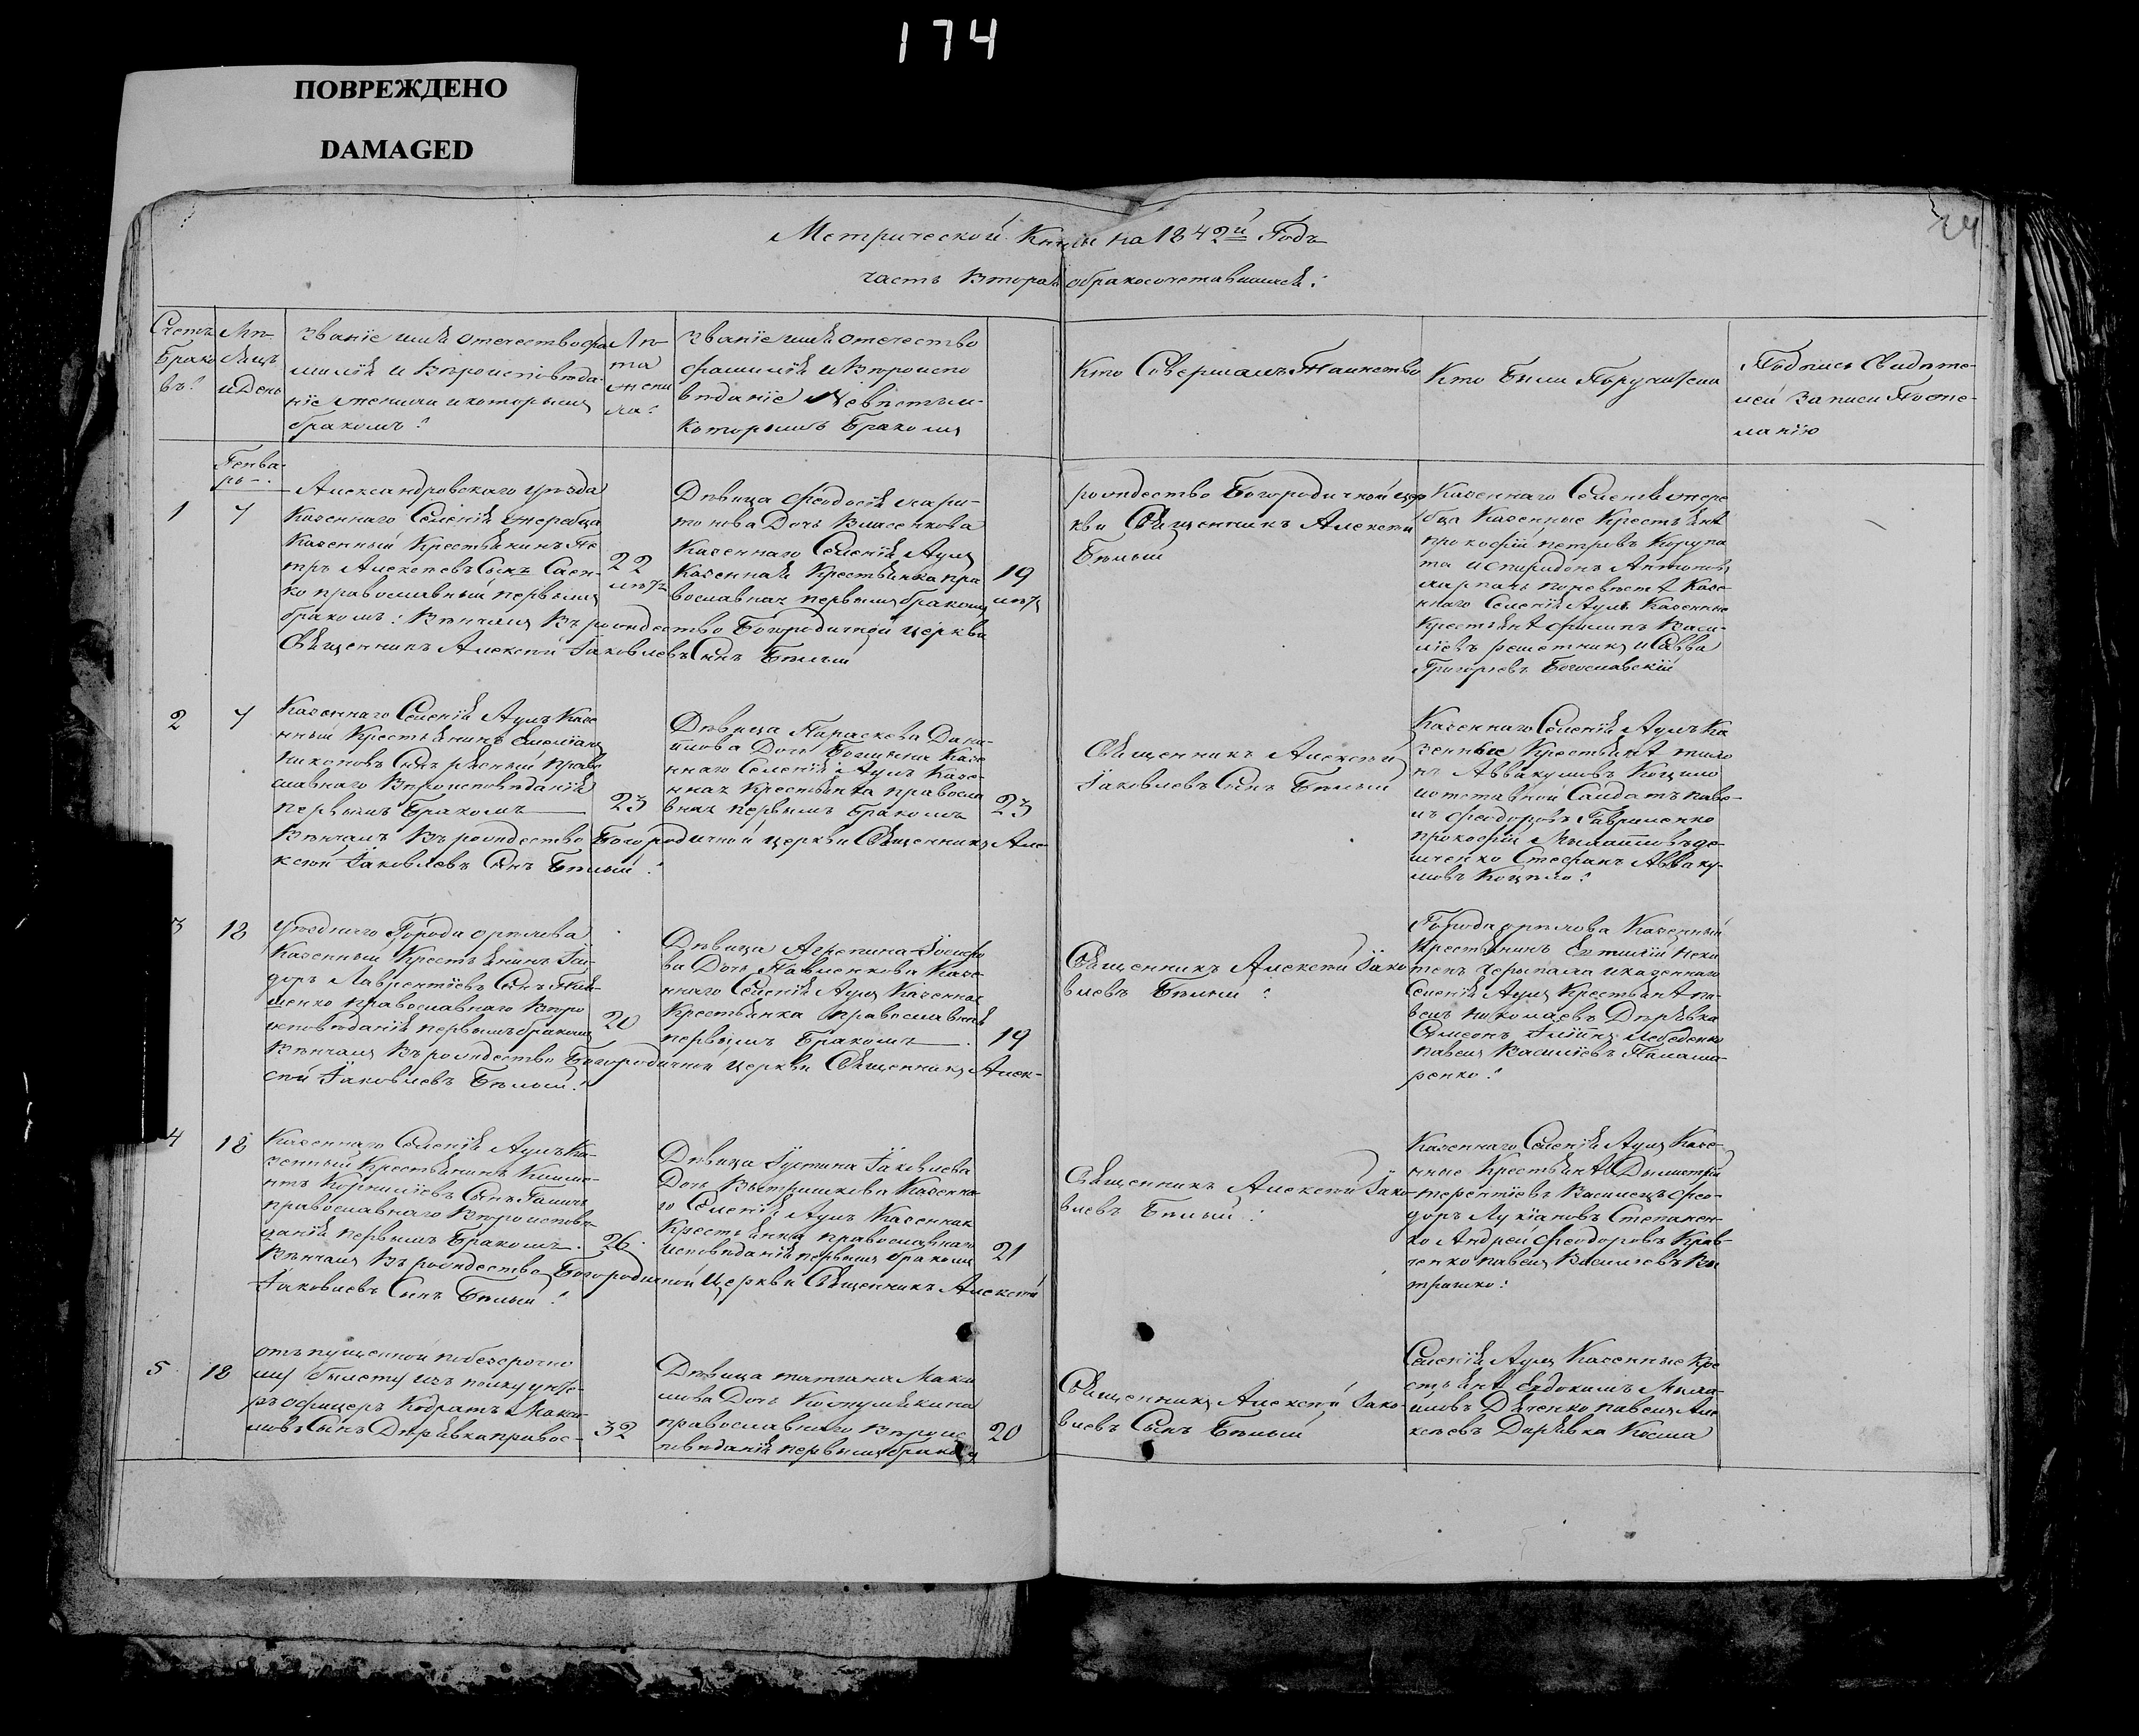 174
ПОВРЕЖДЕНО
DAMAGED
24
Метрической Книги на 1842й Годъ
часть Вторая обракосочетавшихся:
Счетъ
Брако
въ:
Мѣ-
сяцъ
и День
Званіе имя отечество фа
милія и Вѣроисповѣда
ніе жениха и которымъ
бракомъ:
Лѣ-
та
жени
ха:
Званіе имя отечество
фамилія и Вѣроиспо
вѣданіе Невѣсты и
которымъ Бракомъ
Кто Совершалъ Таинство
Кто Были Поручители
Подпись Свидѣте-
лей Записи По же-
ланію
Генва-
рь
1
7
Александровскаго уѣзда
Казеннаго Селенія Жеребца
Казенный Крестьянинъ Пе
тръ Алексѣевъ Сынъ Саен-
ко православный первымъ
бракомъ: Вѣнчалъ Въ рождество Богородичной церкви
Священникъ Алексѣй Іаковлевъ Сынъ Бѣлый
22
лѣтъ
Дѣвица Феодосія Хари-
тонова Дочь Власенкова
Казеннаго Селенія Аулъ
Казенная Крестьянка пра
вославная первымъ бракомъ
19
лѣтъ
рождество Богородичной цер
кви Священникъ Алексѣй
Бѣлый
Казеннаго Селенія жере
бца Казенные Крестьянѣ
прокофій петровъ Корупа
та и Спиридонъ Антоновъ
по невѣстѣ Казе
ннаго Селенія Аулъ Казенные
Крестьянѣ филипъ Васи-
ліевъ решетникъ и Савва
Григорьевъ Богославскій
2
7
Казеннаго Селенія Аулъ Казе
нный Крестьянинъ Емеліянъ
Никоновъ Сынъ рясный право
славнаго Вѣроисповѣданія
первымъ Бракомъ
Вѣнчалъ Въ рождество Богородичной церкви Священникъ Але-
ксѣй Іаковлевъ Сынъ Бѣлый:
23
Дѣвица Параскева Дани-
илова Дочь Казе
ннаго Селенія Аулъ Казе-
нная Крестьянка правосла
вная первымъ Бракомъ
23
Священникъ Алексѣй
Іаковлевъ Сынъ Бѣлый
Казеннаго Селенія Аулъ Ка
зенные Крестьянѣ
Аввакумовъ Коцыло
и отставной Салдатъ паве-
лъ феодоровъ Гавриленко
прокофій
Стефанъ Авваку-
мовъ Коцыло:
3
18
уѣзднаго Города орѣхова
Казенный Крестьянинъ Іси-
доръ Лаврентіевъ Сынъ Тим-
шенко православнаго Вѣро
исповѣданія первымъ бракомъ
Вѣнчалъ Въ рождество Богородичной церкви Священникъ Алек-
сѣй Іаковлевъ Бѣлый:
20
Дѣвица Агрепина Іосифо
ва Дочь Павленкова Казе-
ннаго Селенія Аулъ Казенная
Крестьянка православная
первымъ Бракомъ
19
Священникъ Алексѣй Іако
влевъ Бѣлый:
Города орѣхова Казенный
Крестьянинъ Евтихій Ники
тенъ и казеннаго
Селенія Аулъ Крестьянѣ па-
велъ Николаевъ Дырявка
Симеонъ Иліинъ Лебеденко
павелъ Василіевъ Панама-
ренко:
4
18
Казеннаго Селенія Аулъ Ка-
зенный Крестьянинъ Климе-
нтъ Корниліевъ Сынъ Галичъ
православнаго Вѣроисповѣ-
данія первымъ Бракомъ.
Вѣнчалъ Въ рождество Богородичной Церкви Священникъ Алексѣй
Іаковлевъ Сынъ Бѣлый:
26
Дѣвица Іустина Іаковлева
Дочь Вытришкова Казенна-
го Селенія Аулъ Казенная
Крестьянка православнаго
исповѣданія первымъ бракомъ
21
Священникъ Алексѣй Іако-
влевъ Бѣлый:
Казеннаго Селенія Аулъ Казе-
нные Крестьянѣ Дымитрій
терентіевъ Василецъ фео-
доръ Лукіановъ Степанен-
ко Андрей Феодоровъ Крав-
ченко павелъ Василіевъ Вы
тришко:
5
18
отъпущенной по безсрочно
му билету изъ полку унте-
ръ офицеръ Кодратъ Макси-
мовъ Сынъ Дырявка правос-
32
Дѣвица татіана Макси
мова Дочь
православнаго Вѣроис
повѣданія первымъ бракомъ
20
Священникъ Алексѣй Іако-
влевъ Сынъ Бѣлый
Селенія Аулъ Казенные Кре
стьянѣ Евдокимъ Миха-
иловъ Дяченко павелъ Але
ксѣевъ Дырявка Косма